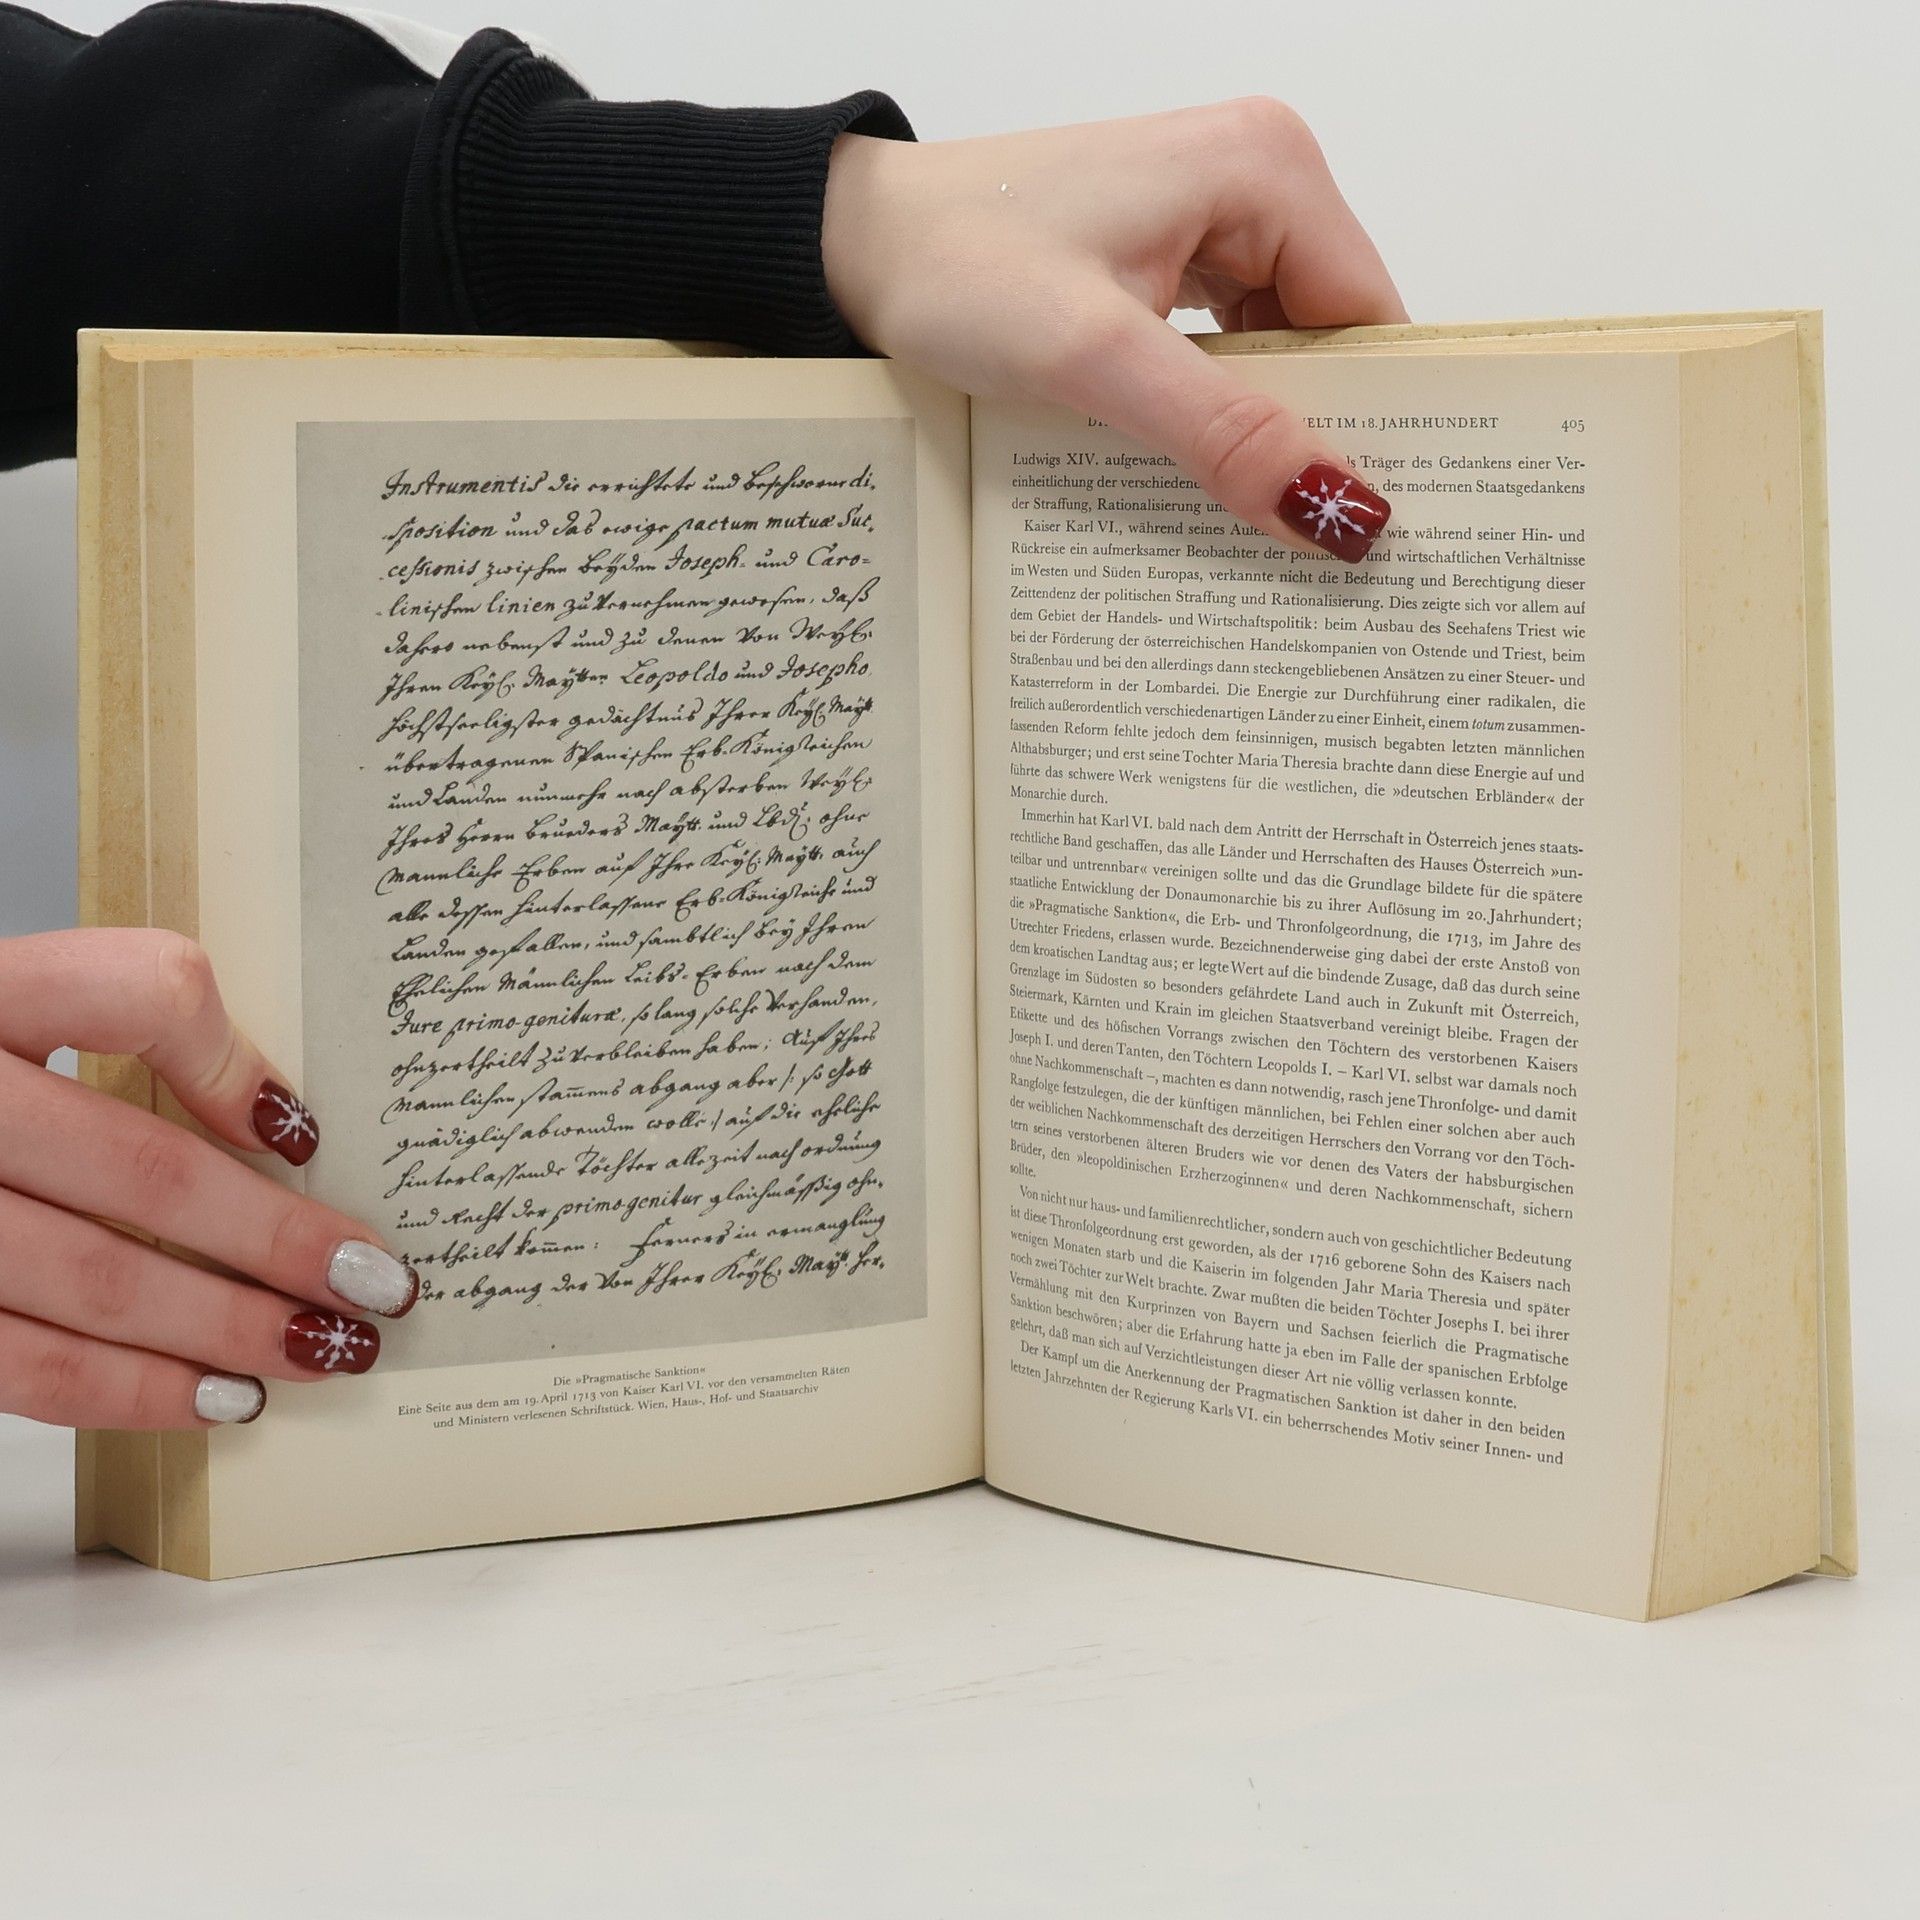 Instrumentis die errichtete und beschworne di-
sposition und das ewige pactum mutuæ Suc-
cessionis zwischen beyden Joseph- und Caro-
linischen linien zu vernehmen gewesen, daß
dahero nebenst und zu denen von Weyl:
Ihren Keyl: Maytten Leopoldo und Josepho
höchstseeligster gedächtnus Ihrer Keyl: Maytt
übertragenen Spanischen Erb-Königreichen
und Landen nunmehr nach absterben Weyl:
Ihres Herrn Brueders Maytt: und Lbd: ohne
Mannliche Erben auf Ihre Keyl: Maytt: auch
alle dessen hinterlassene Erb-Königreiche und
Landen gefallen, und sambtlich bey Ihren
Ehelichen Männlichen Leibs-Erben nach dem
Jure primo-genituræ, so lang solche verhanden,
ohnzertheilt zu verbleiben haben; Auf Ihres
Mannlichen stam̄ens abgang aber /: so Gott
gnädiglich abwenden wolle :/ auf die eheliche
hinterlassende Töchter allezeit nach ordnung
und Recht der primo-genitur gleichmässig ohn-
zertheilt kom̄en: Ferners in ermanglung
oder abgang der von Ihrer Keyl: Maytt: her-
Die »Pragmatische Sanktion«
Eine Seite aus dem am 19. April 1713 von Kaiser Karl VI. vor den versammelten Räten
und Ministern verlesenen Schriftstück. Wien, Haus-, Hof- und Staatsarchiv
WELT IM 18. JAHRHUNDERT 405
Ludwigs XIV. Träger des Gedankens einer Ver-
einheitlichung der des modernen Staatsgedankens
der Straffung, Rationalisierung
Kaiser Karl VI., während seines wie während seiner Hin- und
Rückreise ein aufmerksamer Beobachter der und wirtschaftlichen Verhältnisse
im Westen und Süden Europas, verkannte nicht die Bedeutung und Berechtigung dieser
Zeittendenz der politischen Straffung und Rationalisierung. Dies zeigte sich vor allem auf
dem Gebiet der Handels- und Wirtschaftspolitik: beim Ausbau des Seehafens Triest wie
bei der Förderung der österreichischen Handelskompanien von Ostende und Triest, beim
Straßenbau und bei den allerdings dann steckengebliebenen Ansätzen zu einer Steuer- und
Katasterreform in der Lombardei. Die Energie zur Durchführung einer radikalen, die
freilich außerordentlich verschiedenartigen Länder zu einer Einheit, einem totum zusammen-
fassenden Reform fehlte jedoch dem feinsinnigen, musisch begabten letzten männlichen
Althabsburger; und erst seine Tochter Maria Theresia brachte dann diese Energie auf und
führte das schwere Werk wenigstens für die westlichen, die »deutschen Erbländer« der
Monarchie durch.
Immerhin hat Karl VI. bald nach dem Antritt der Herrschaft in Österreich jenes staats-
rechtliche Band geschaffen, das alle Länder und Herrschaften des Hauses Österreich »un-
teilbar und untrennbar« vereinigen sollte und das die Grundlage bildete für die spätere
staatliche Entwicklung der Donaumonarchie bis zu ihrer Auflösung im 20. Jahrhundert;
die »Pragmatische Sanktion«, die Erb- und Thronfolgeordnung, die 1713, im Jahre des
Utrechter Friedens, erlassen wurde. Bezeichnenderweise ging dabei der erste Anstoß von
dem kroatischen Landtag aus; er legte Wert auf die bindende Zusage, daß das durch seine
Grenzlage im Südosten so besonders gefährdete Land auch in Zukunft mit Österreich,
Steiermark, Kärnten und Krain im gleichen Staatsverband vereinigt bleibe. Fragen der
Etikette und des höfischen Vorrangs zwischen den Töchtern des verstorbenen Kaisers
Joseph I. und deren Tanten, den Töchtern Leopolds I. – Karl VI. selbst war damals noch
ohne Nachkommenschaft –, machten es dann notwendig, rasch jene Thronfolge- und damit
Rangfolge festzulegen, die der künftigen männlichen, bei Fehlen einer solchen aber auch
der weiblichen Nachkommenschaft des derzeitigen Herrschers den Vorrang vor den Töch-
tern seines verstorbenen älteren Bruders wie vor denen des Vaters der habsburgischen
Brüder, den »leopoldinischen Erzherzoginnen« und deren Nachkommenschaft, sichern
sollte.
Von nicht nur haus- und familienrechtlicher, sondern auch von geschichtlicher Bedeutung
ist diese Thronfolgeordnung erst geworden, als der 1716 geborene Sohn des Kaisers nach
wenigen Monaten starb und die Kaiserin im folgenden Jahr Maria Theresia und später
noch zwei Töchter zur Welt brachte. Zwar mußten die beiden Töchter Josephs I. bei ihrer
Vermählung mit den Kurprinzen von Bayern und Sachsen feierlich die Pragmatische
Sanktion beschwören; aber die Erfahrung hatte ja eben im Falle der spanischen Erbfolge
gelehrt, daß man sich auf Verzichtleistungen dieser Art nie völlig verlassen konnte.
Der Kampf um die Anerkennung der Pragmatischen Sanktion ist daher in den beiden
letzten Jahrzehnten der Regierung Karls VI. ein beherrschendes Motiv seiner Innen- und